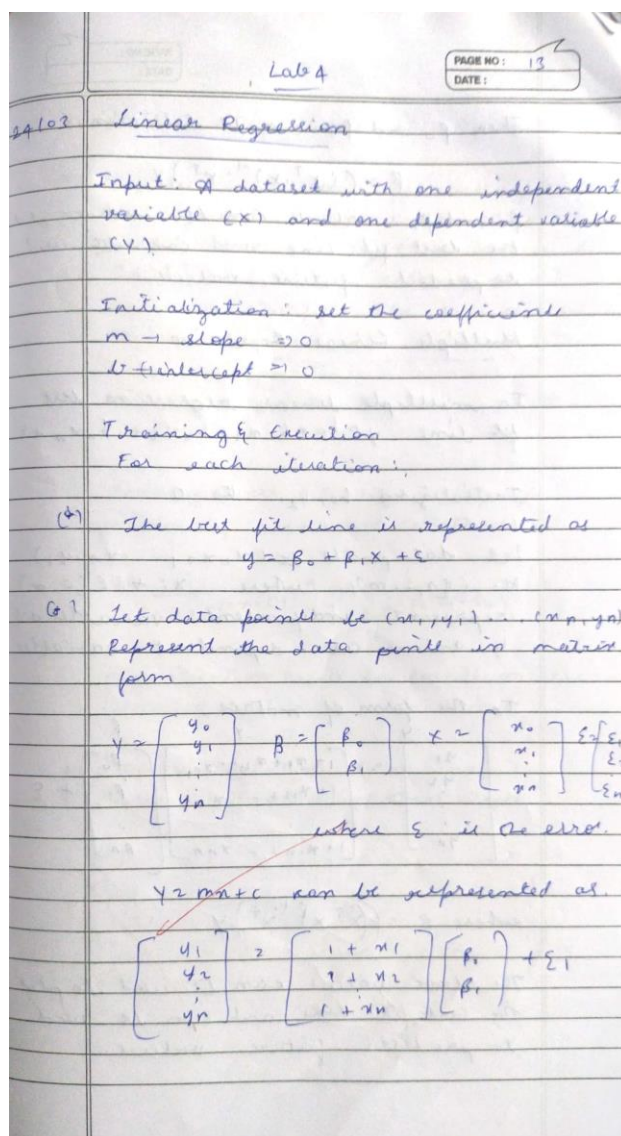 Lab 4
PAGE NO: 13
DATE:
24/03 Linear Regression
Input: A dataset with one independent
variable (X) and one dependent variable
(Y).
Initialization: set the coefficients
m → slope => 0
b → intercept => 0
Training & Execution
For each iteration:
The best fit line is represented as
y = β₀ + β₁x + ε
Let data points be (x₁, y₁) ... (xₙ, yₙ)
Represent the data points in matrix
form
Y = [y₀ y₁ : yₙ] β = [β₀ β₁] X = [x₀ x₁ : xₙ] ε = [ε
where ε is the error.
Y = mx + c can be represented as.
[y₁ y₂ : yₙ] = [1 + x₁ 1 + x₂ : 1 + xₙ] [β₀ β₁] + ε₁